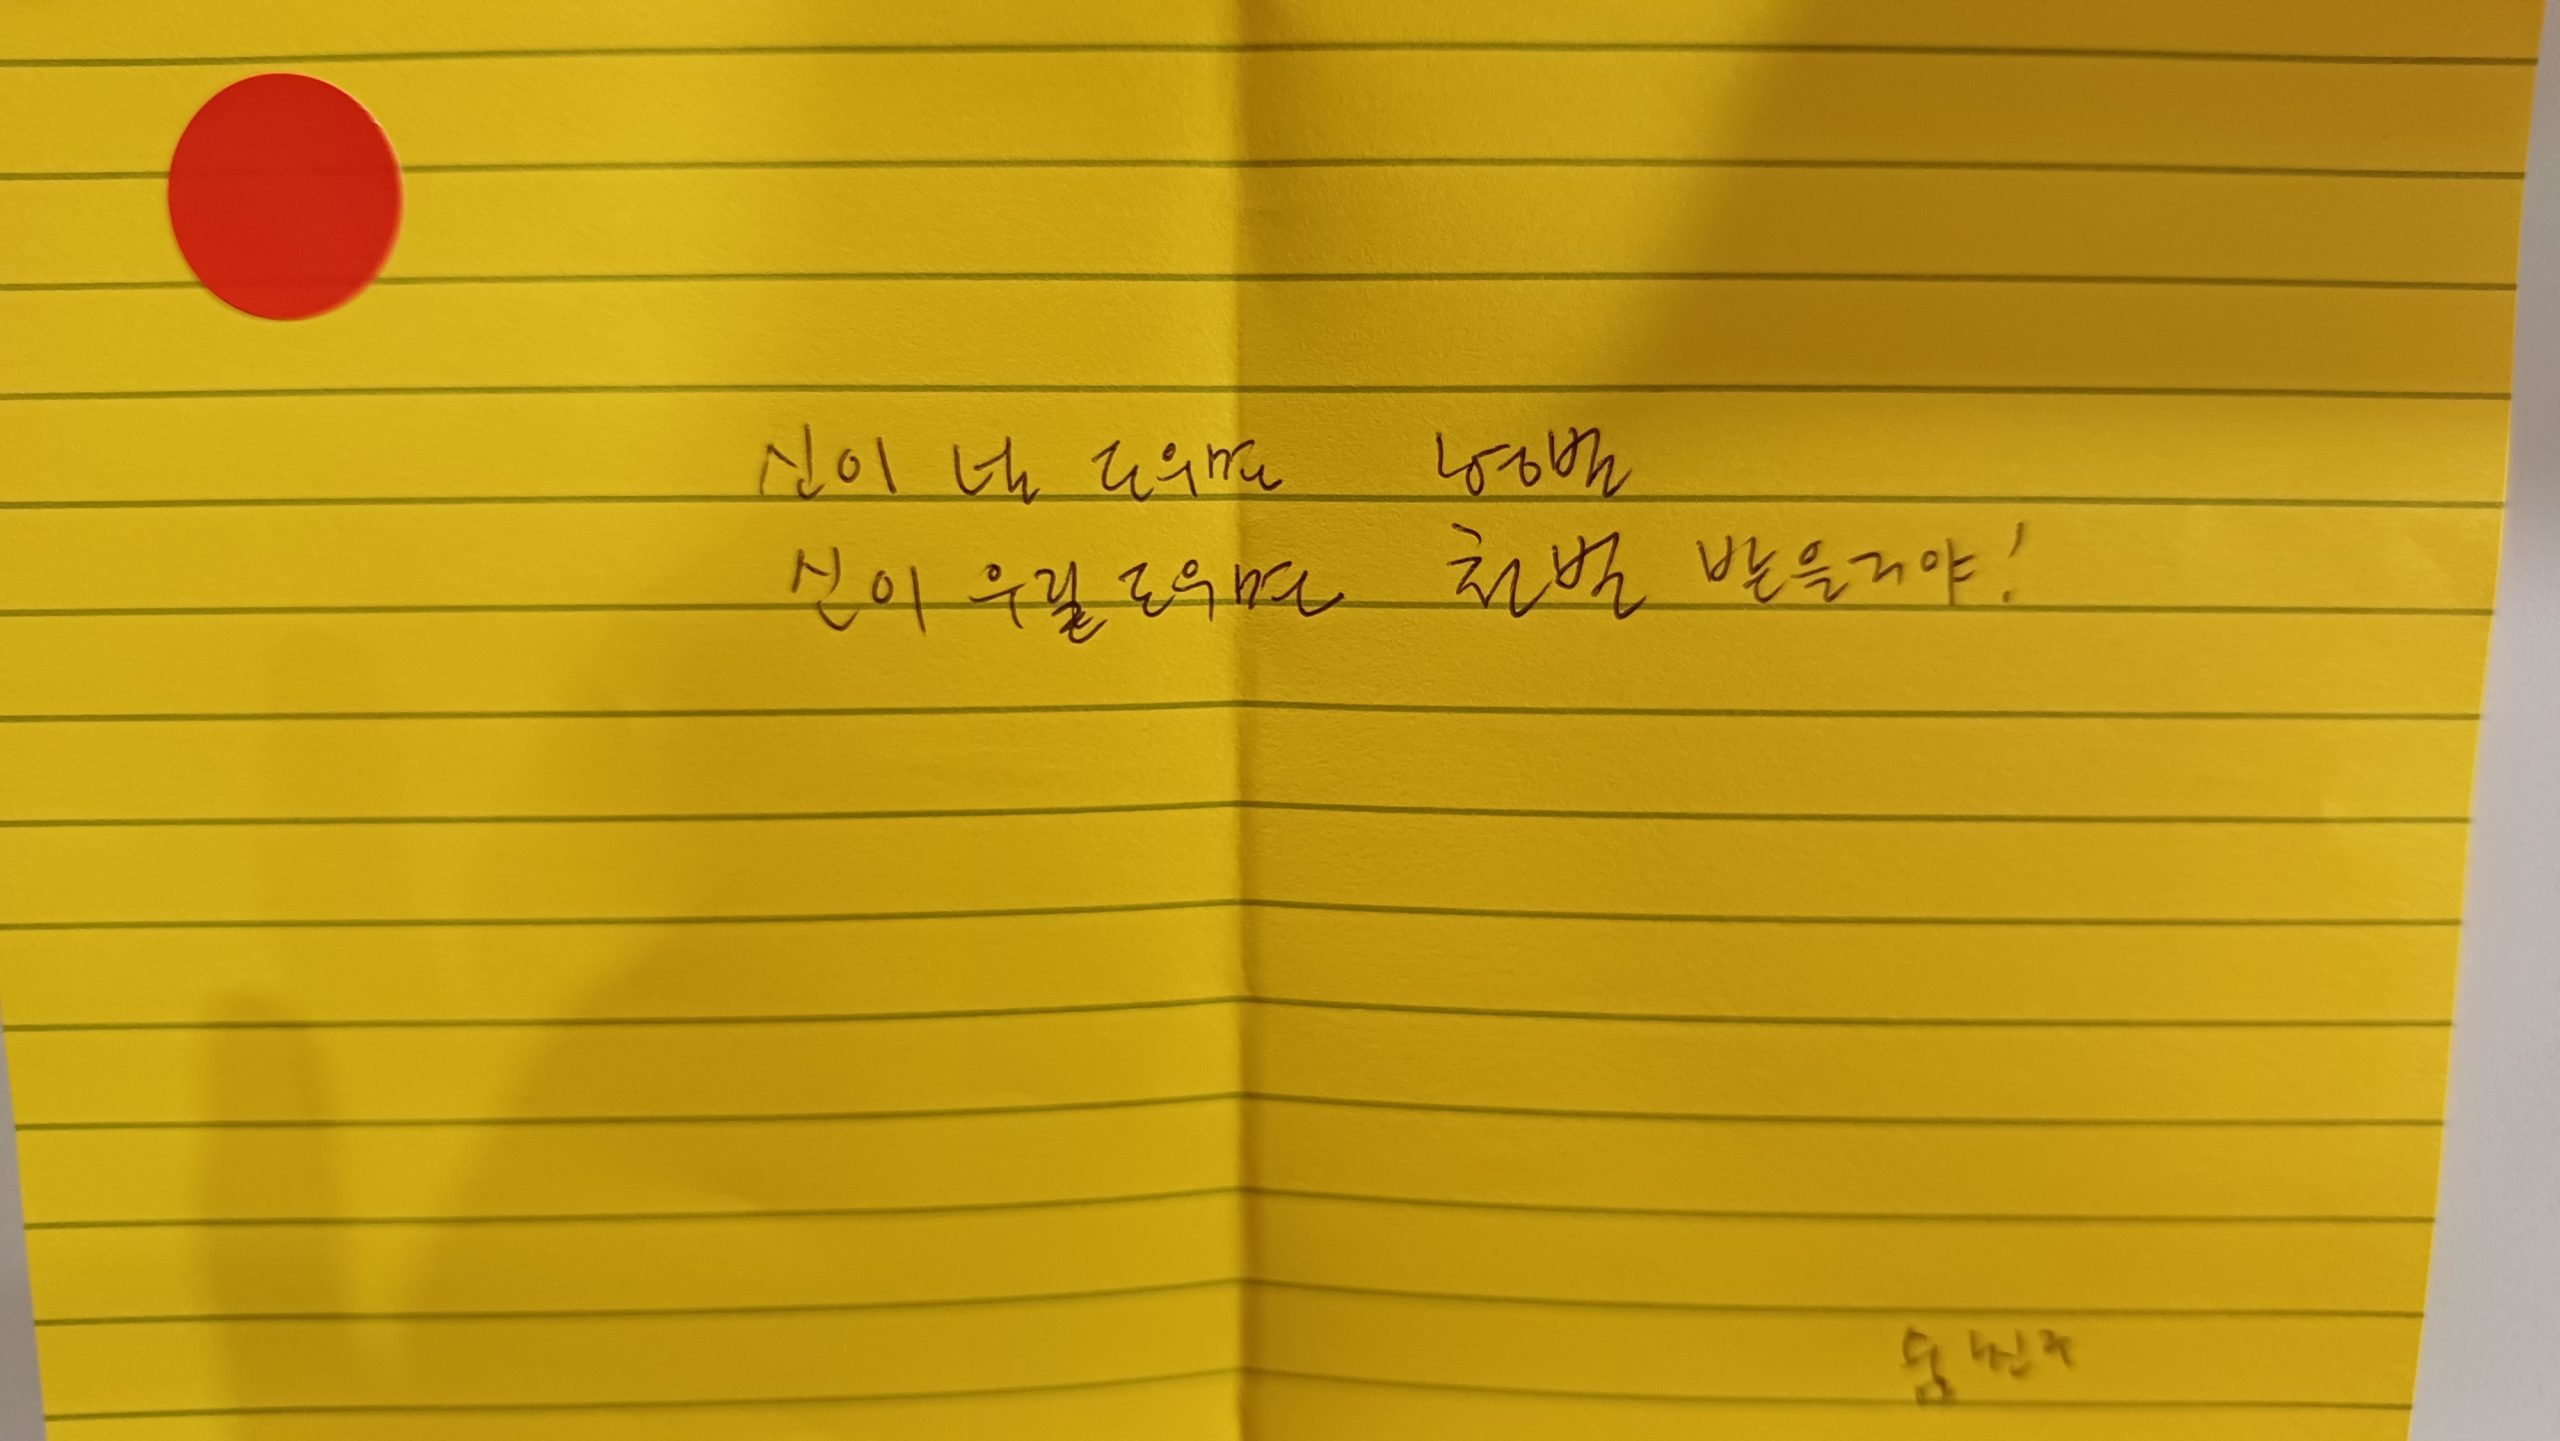 신이 널 도우면 형벌
신이 우릴 도우면 천벌 받을거야!